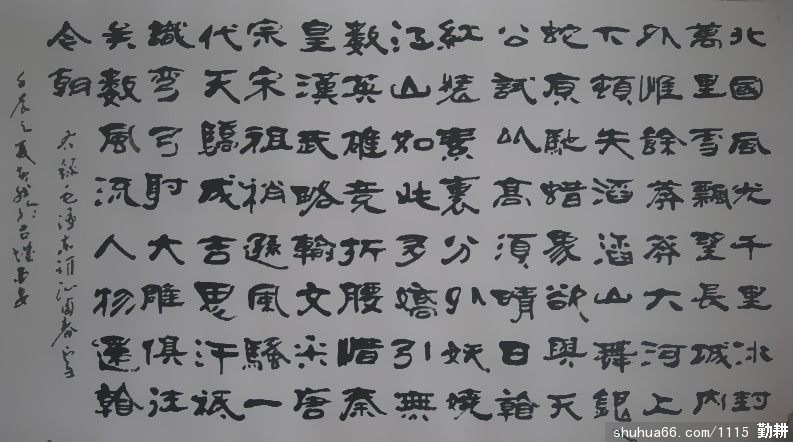 北國風光千里冰封
萬里雪飄望長城内
外惟餘莽莽大河上
下頓失滔滔山舞銀
蛇原馳蜡象欲與天
公試比高須晴日看
紅裝素裹分外妖嬈
江山如此多嬌引無
數英雄竞折腰惜秦
皇漢武略輸文采唐
宗宋祖稍遜風騷一
代天驕成吉思汗祇
識彎弓射大雕俱往
矣數風流人物還看
今朝
右錄毛澤東詞沁園春雪
壬辰之夏
shuhua66.com/1115 勤耕